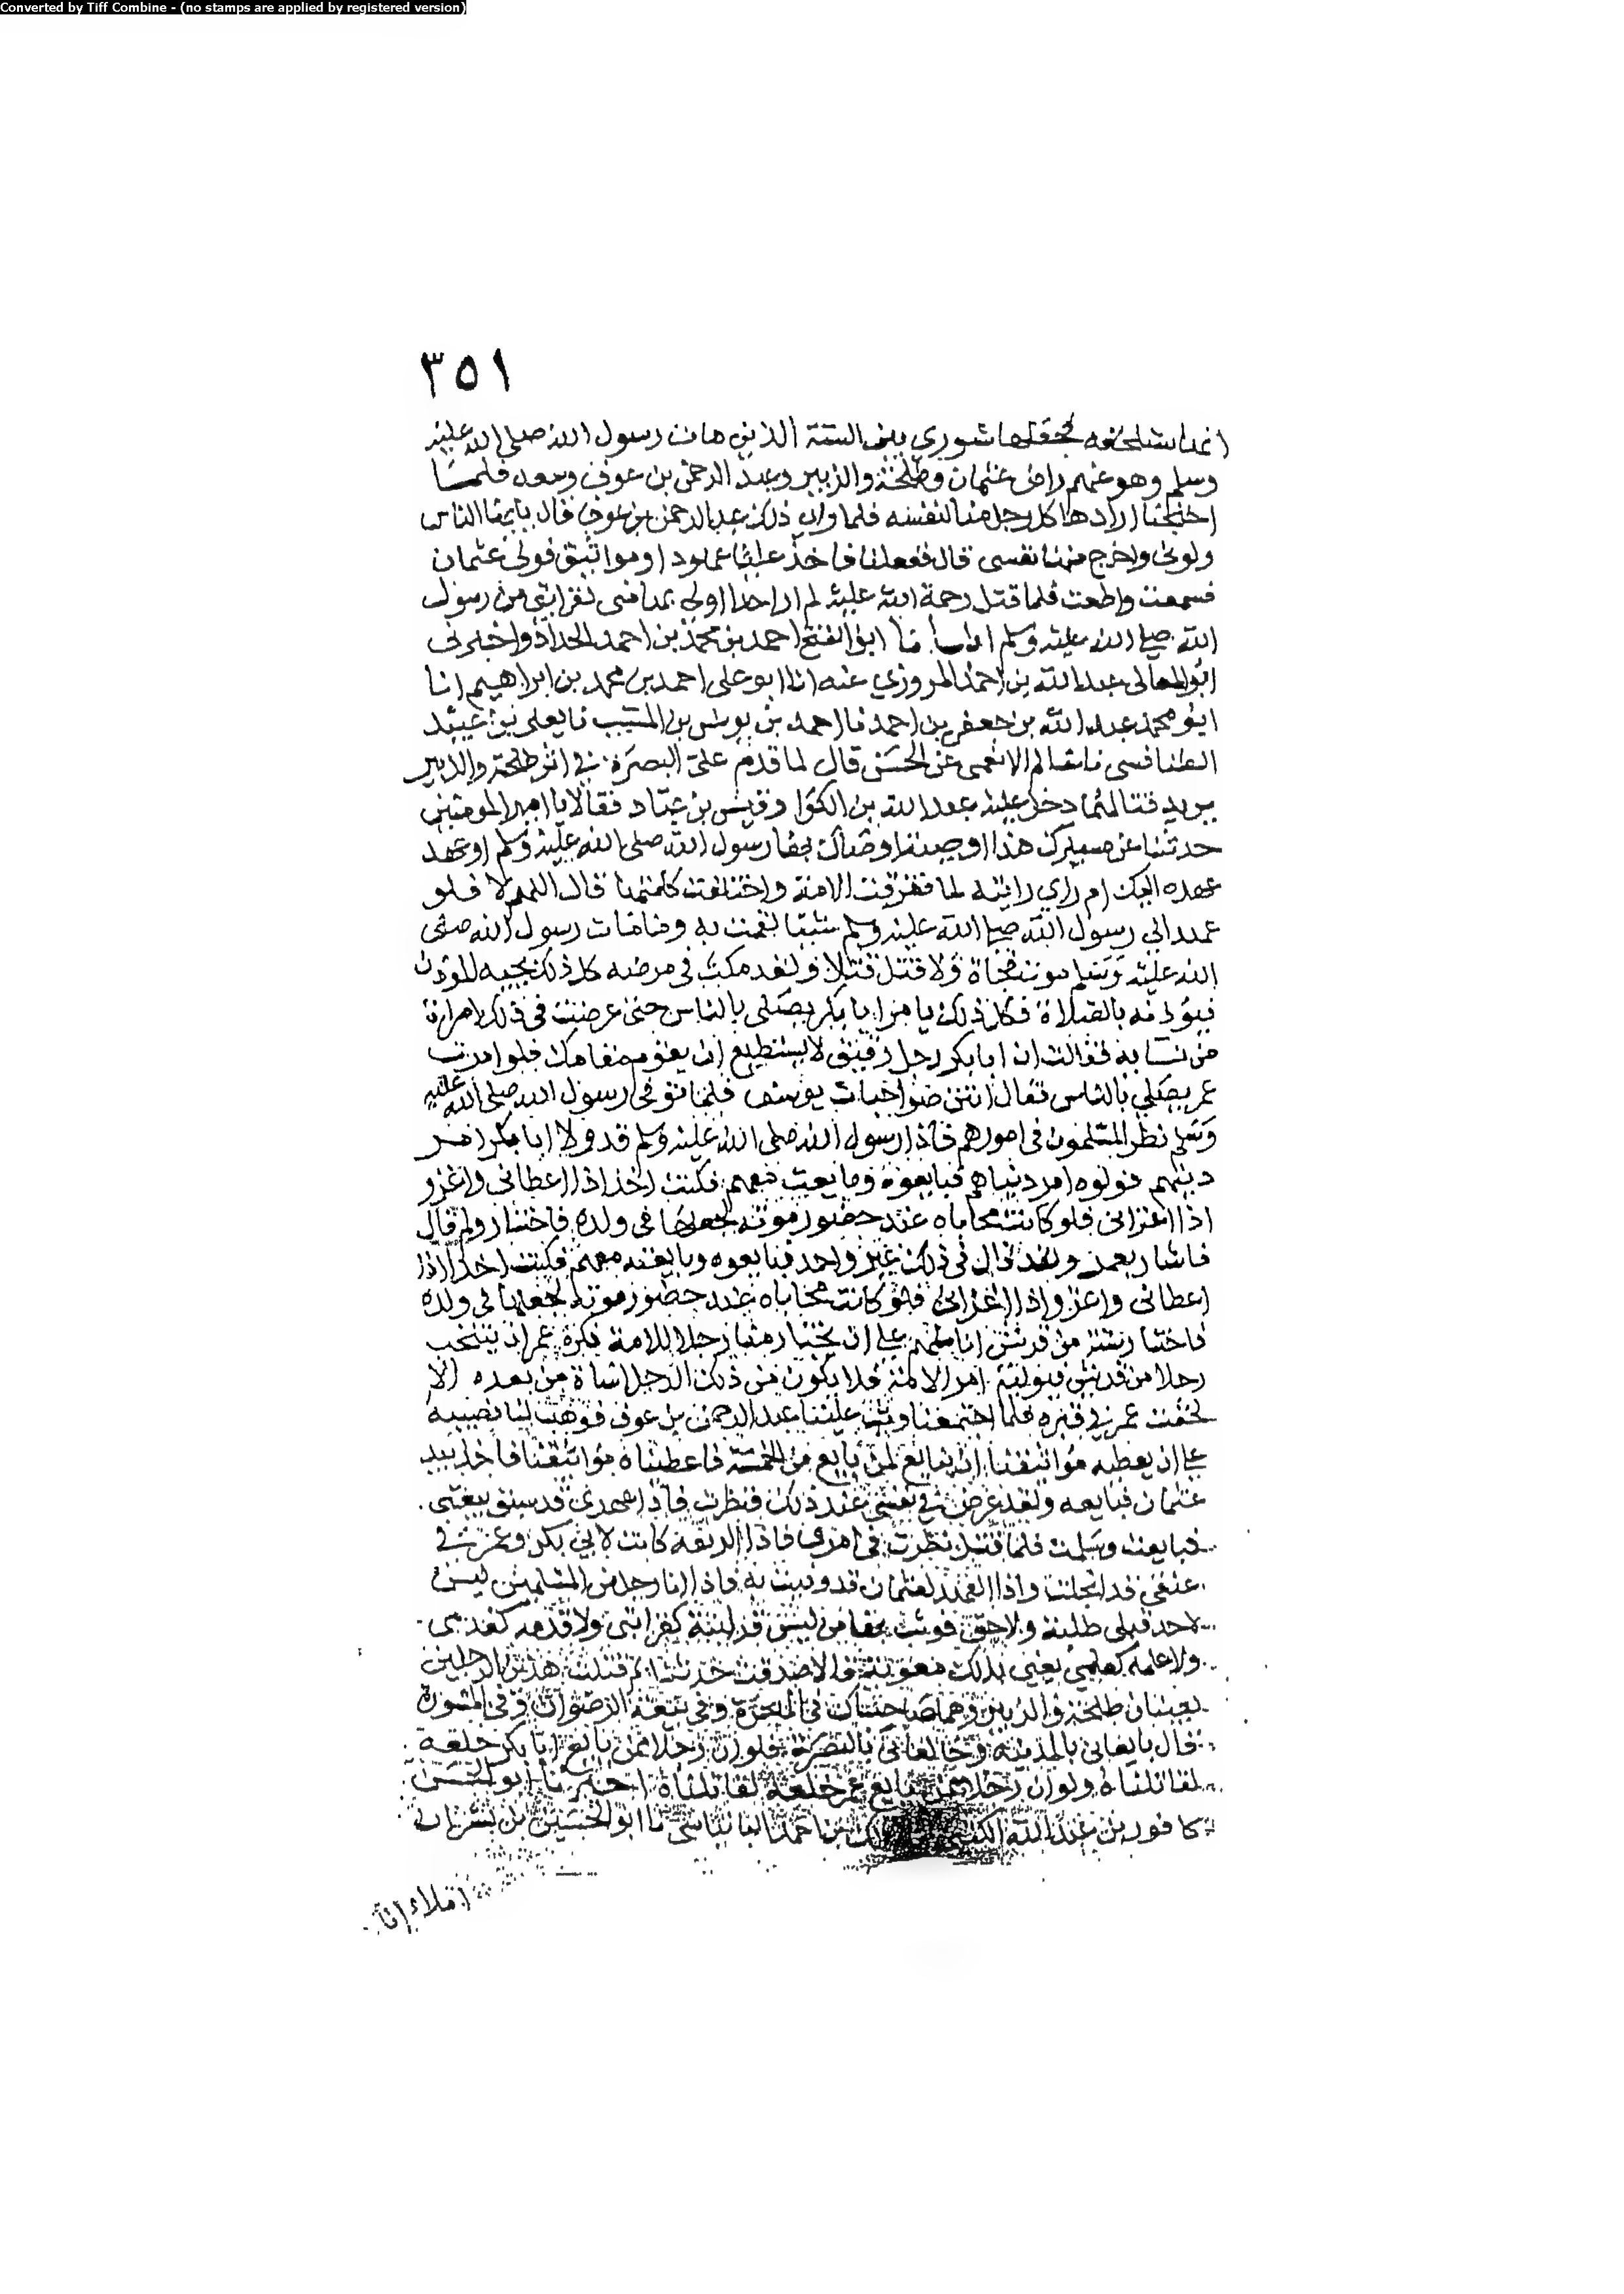 Converted by Tiff Combine - (no stamps are applied by registered version)
٣٥١
فجعلها شورى بين الستة الذين مات رسول الله صلى الله عليه
وسلم وهو عنهم راض عثمان وطلحة والزبير وعبد الرحمن بن عوف وسعد فلما
اجتمعنا ارادها كل رجل منا لنفسه فلما راى ذلك عبد الرحمن بن عوف قال يا يها الناس
ولونى واخرج منها نفسى قال ففعلنا فاخذ علينا عهودا ومواثيق فولى عثمان
فسمعت واطعت فلما قتل رحمة الله عليه لم ار احدا اولى بها منى لقرابتى من رسول
الله صلى الله عليه وسلم نا ابو الفتح احمد بن محمد بن احمد الحداد واخبرنى
ابو المعالى عبد الله بن احمد المروزي عنه انا ابو على احمد بن محمد بن ابراهيم انا
ابو محمد عبد الله بن جعفر بن احمد نا احمد بن يونس بن المسيب نا يعلى بن عبيد
الطنافسى نا عن الحسن قال لما قدم على البصرة فى اثر طلحة والزبير
يريد قتالهما دخل عليه عبد الله بن الكوا وقيس بن عباد فقالا يا امير المومنين
حدثنا عن مسيرك هذا اوصية اوصاك بها رسول الله صلى الله عليه وسلم او عهد
عهده اليك ام راي رايته لما تفرقت الامة واختلفت كلمتها قال اللهم لا فلو
عهد الى رسول الله صلى الله عليه وسلم شيئا لقمت به وما مات رسول الله صلى
الله عليه وسلم موت فجاة ولا قتل قتلا ولقد مكث فى مرضه كل ذلك يجيبه الموذن
فيوذنه بالصلاة فكل ذلك يامر ابا بكر يصلى بالناس حتى عرضت فى ذلك امراة
من نسايه فقالت ان ابا بكر رجل رقيق لا يستطيع ان يقوم مقامك فلو امرت
عمر يصلى بالناس فقال انتن صواحبات يوسف فلما توفى رسول الله صلى الله عليه
وسلم نظر المسلمون فى امورهم فاذا رسول الله صلى الله عليه وسلم قد ولا ابا بكر امر
دينهم فولوه امر دنياهم فبايعوه وبايعت معهم فكنت اخذ اذا اعطانى واغزو
اذا اغزانى فلو كانت محاباه عند حضور موته لجعلها فى ولده فاختار
فاشار بعمر فى ذلك غير واحد فبايعوه وبايعته معهم فكنت اخذ اذا
اعطانى واغزو اذا اغزانى فلو كانت محاباه عند حضور موته لجعلها فى ولده
فاختار ستة من قريش انا منهم على ان يختار منا رجلا للامة فكره عمر ان ينتخب
رجلا من قريش فيوليه امر الامة فلا يكون من ذلك الرجل اساة من بعده الا
لحقت عمر فى قبره فلما اجتمعنا وثب علينا عبد الرحمن بن عوف فوهب لنا نصيبه
على ان يعطيه مواثيقنا ان نبايع لمن بايع من الخمسة فاعطيناه مواثيقنا فاخذ بيد
عثمان فبايعه ولقد عرض فى نفسى عند ذلك فنظرت فاذا عهدى قد سبق بيعتى
فبايعت وسلمت فلما قتل نظرت فى امرى فاذا الربقة كانت لابى بكر وعمر فى
عنقى قد انحلت واذا العهد لعثمان قد وفيت به فاذا انا رجل من المسلمين ليس
لاحد قبلى طلبة ولا حق فوثب فيها من ليس قرابته كقرابتى ولا قدمه كقدمى
ولا علمه كعلمى يعنى بذلك معوية قالا صدقت حدثنا بم قتلت هذين الرجلين
يعنيان طلحة والزبير وهما صاحباك فى الهجرة وفى بيعة الرضوان وفى المشورة
قال بايعانى بالمدينة وخالعانى بالبصرة فلو ان رجلا ممن بايع ابا بكر خلعه
لقاتلناه ولو ان رجلا ممن بايع عمر خلعه لقاتلناه اخبرنا ابو الحسن
كافور بن عبد الله بن احمد البانياسى نا ابو الحسين بن بشران
املاء انا